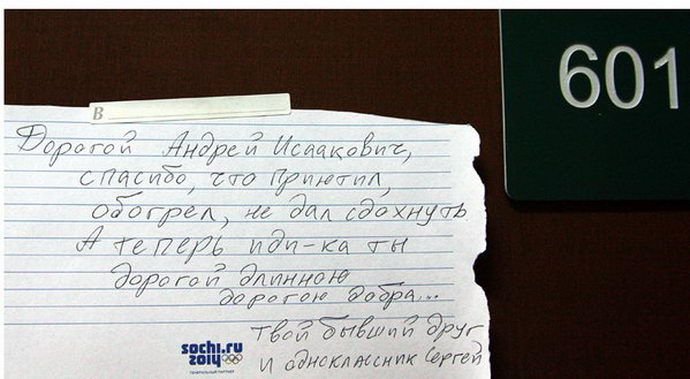 601
В
Дорогой Андрей Исаакович,
спасибо, что приютил,
обогрел, не дал сдохнуть
А теперь иди-ка ты
дорогой длинною
дорогою добра...
твой бывший друг
и одноклассник Сергей
sochi.ru
2014
ГЕНЕРАЛЬНЫЙ ПАРТНЕР